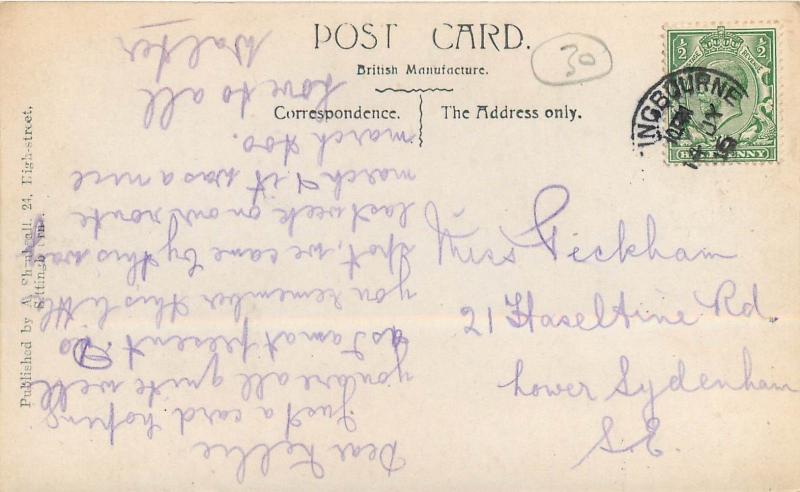 POST CARD.
British Manufacture.
Correspondence.
The Address only.
30
½ ½
HALFPENNY
INGBOURNE
Miss Peckham
21 Haseltine Rd.
Lower Sydenham
S.E.
Dear Nellie
Just a card hoping
you are all quite well
as I am at present. Do
you remember this little
spot, we came by this way
last week on our route
march & it was a nice
march too.
Love to all
Walter
Published by A. 24, High-street,